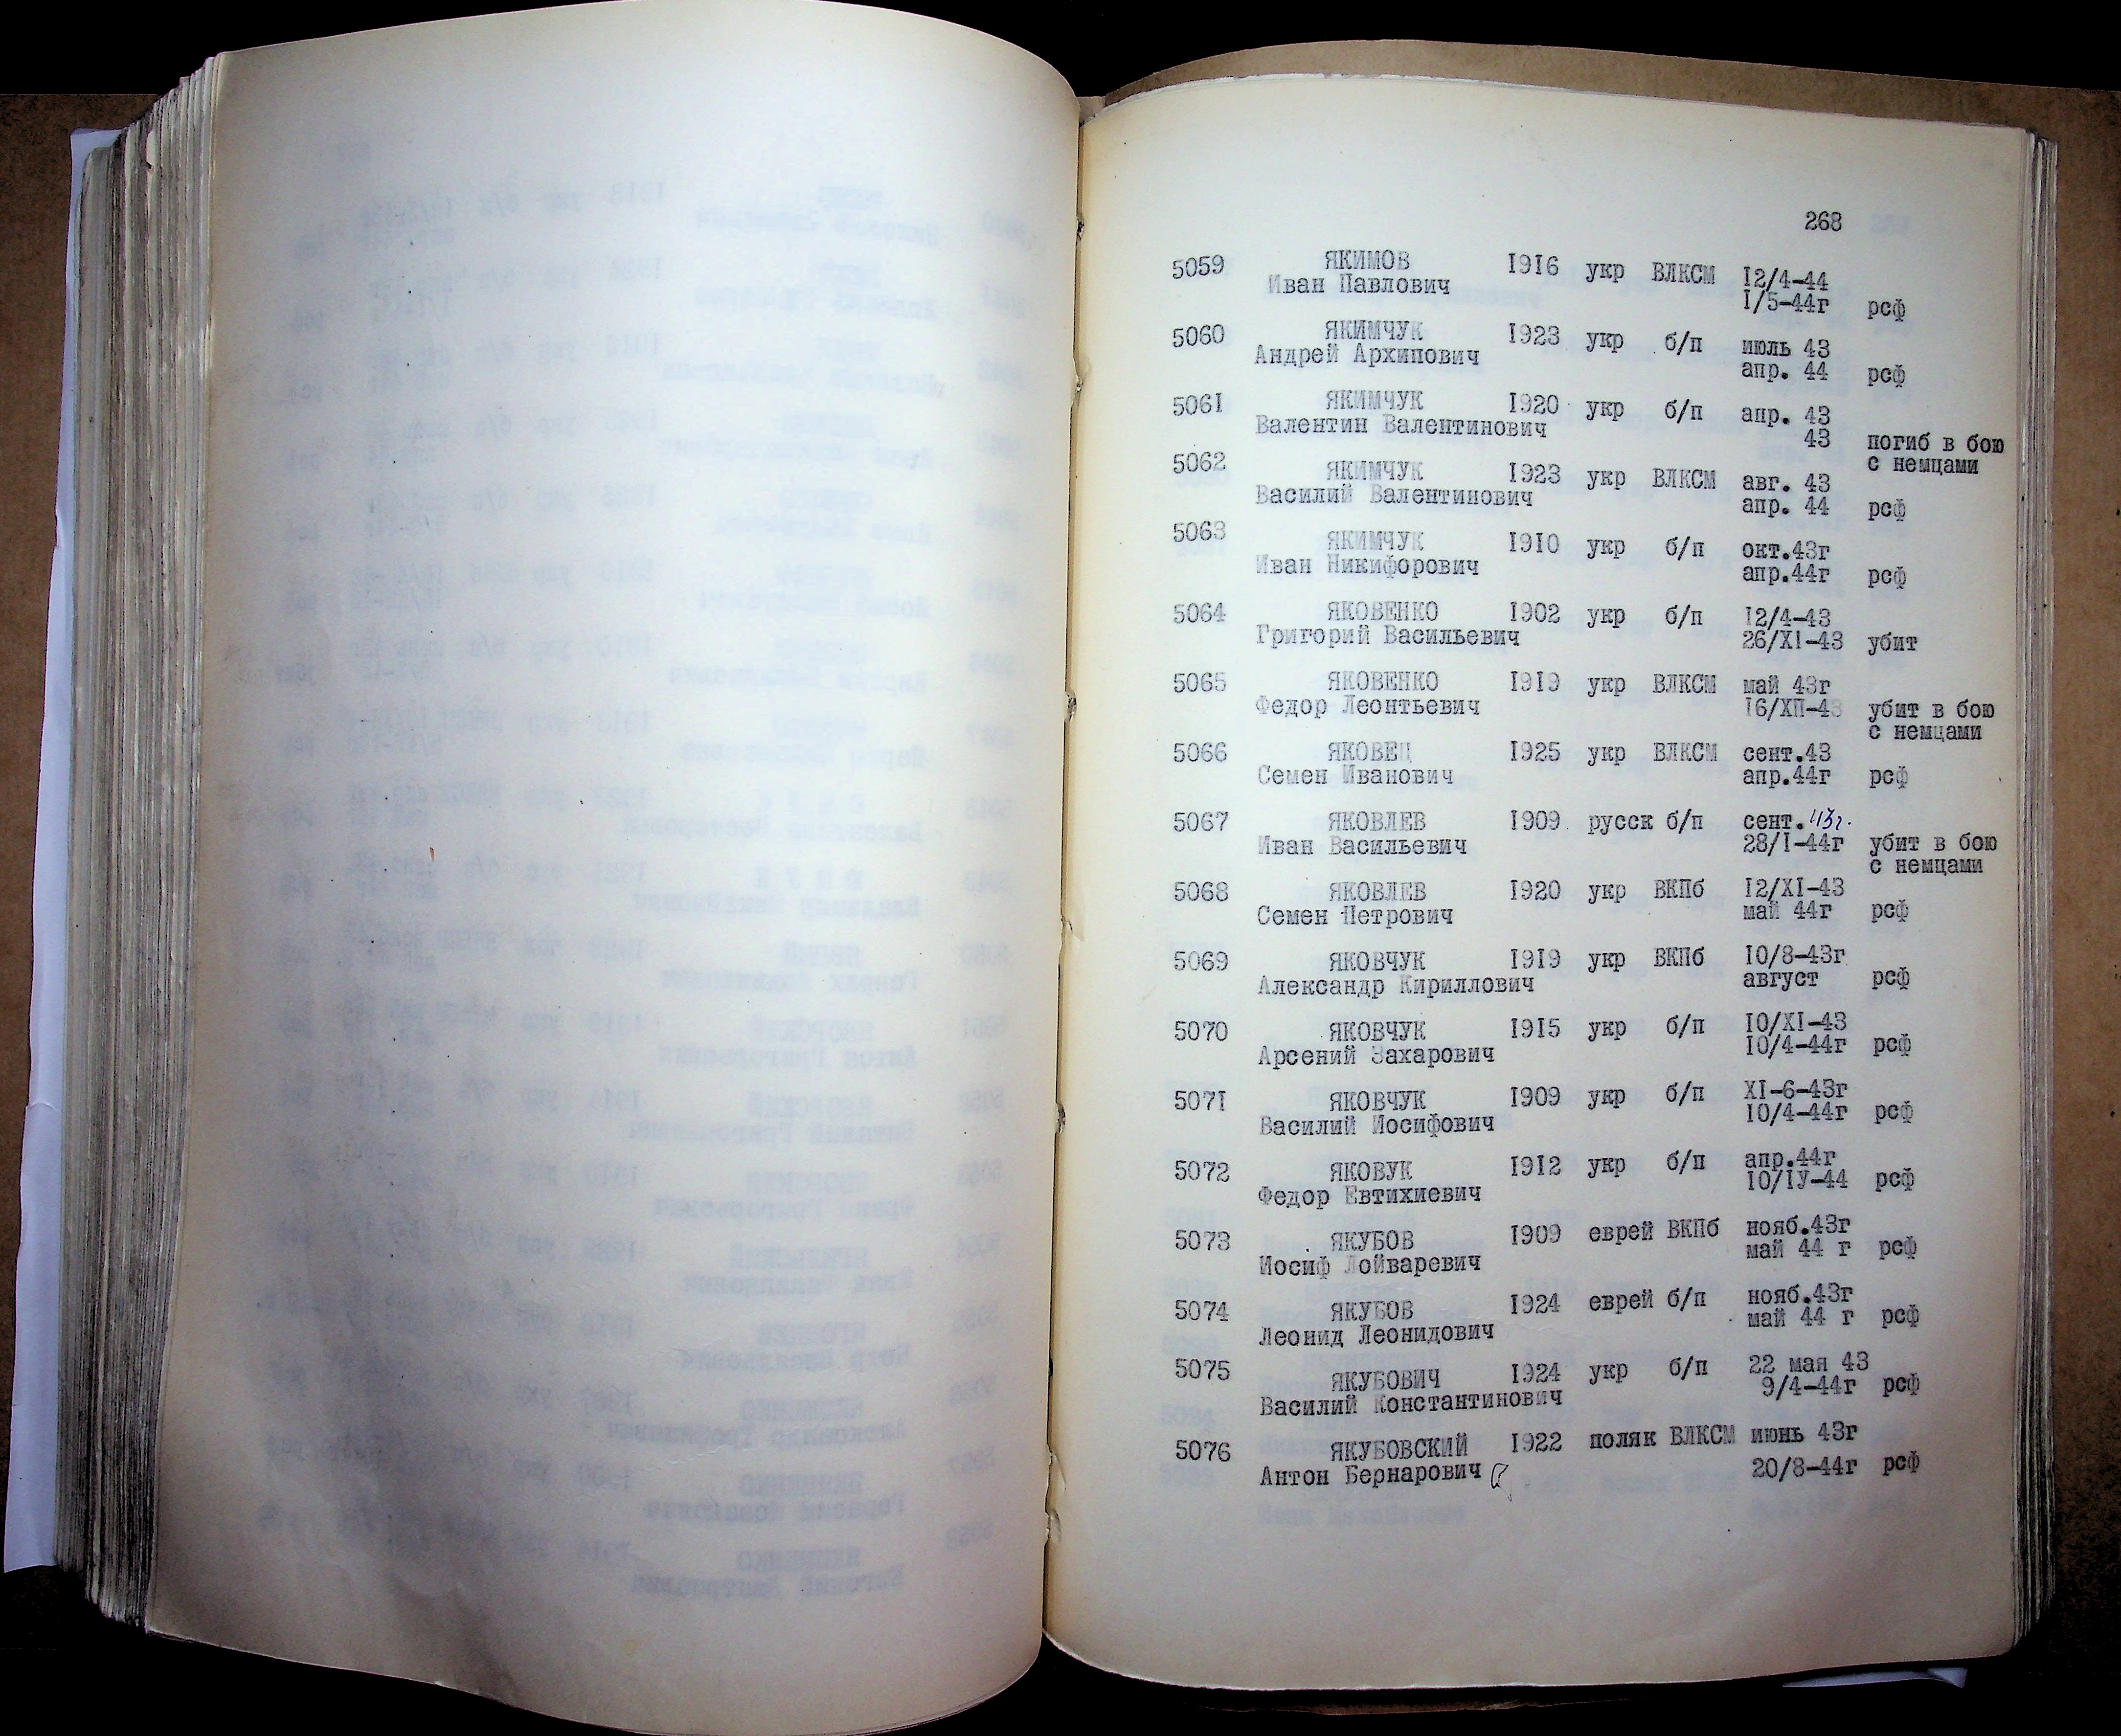 268
5059 ЯКИМОВ 1916 укр ВЛКСМ 12/4-44
Иван Павлович 1/5-44г рсф
5060 ЯКИМЧУК 1923 укр б/п июль 43
Андрей Архипович апр. 44 рсф
5061 ЯКИМЧУК 1920 укр б/п апр. 43
Валентин Валентинович 43 погиб в бою
с немцами
5062 ЯКИМЧУК 1923 укр ВЛКСМ авг. 43
Василий Валентинович апр. 44 рсф
5063 ЯКИМЧУК 1910 укр б/п окт.43г
Иван Никифорович апр.44г рсф
5064 ЯКОВЕНКО 1902 укр б/п 12/4-43
Григорий Васильевич 26/XI-43 убит
5065 ЯКОВЕНКО 1919 укр ВЛКСМ май 43г
Федор Леонтьевич 16/ХП-43 убит в бою
с немцами
5066 ЯКОВЕЦ 1925 укр ВЛКСМ сент.43
Семен Иванович апр.44г рсф
5067 ЯКОВЛЕВ 1909 русск б/п сент.43г.
Иван Васильевич 28/I-44г убит в бою
с немцами
5068 ЯКОВЛЕВ 1920 укр ВКПб 12/XI-43
Семен Петрович май 44г рсф
5069 ЯКОВЧУК 1919 укр ВКПб 10/8-43г
Александр Кириллович август рсф
5070 ЯКОВЧУК 1915 укр б/п 10/XI-43
Арсений Захарович 10/4-44г рсф
5071 ЯКОВЧУК 1909 укр б/п XI-6-43г
Василий Иосифович 10/4-44г рсф
5072 ЯКОВУК 1912 укр б/п апр.44г
Федор Евтихиевич 10/IУ-44 рсф
5073 ЯКУБОВ 1909 еврей ВКПб нояб.43г
Иосиф Лойваревич май 44 г рсф
5074 ЯКУБОВ 1924 еврей б/п нояб.43г
Леонид Леонидович май 44 г рсф
5075 ЯКУБОВИЧ 1924 укр б/п 22 мая 43
Василий Константинович 9/4-44г рсф
5076 ЯКУБОВСКИЙ 1922 поляк ВЛКСМ июнь 43г
Антон Бернарович 20/8-44г рсф